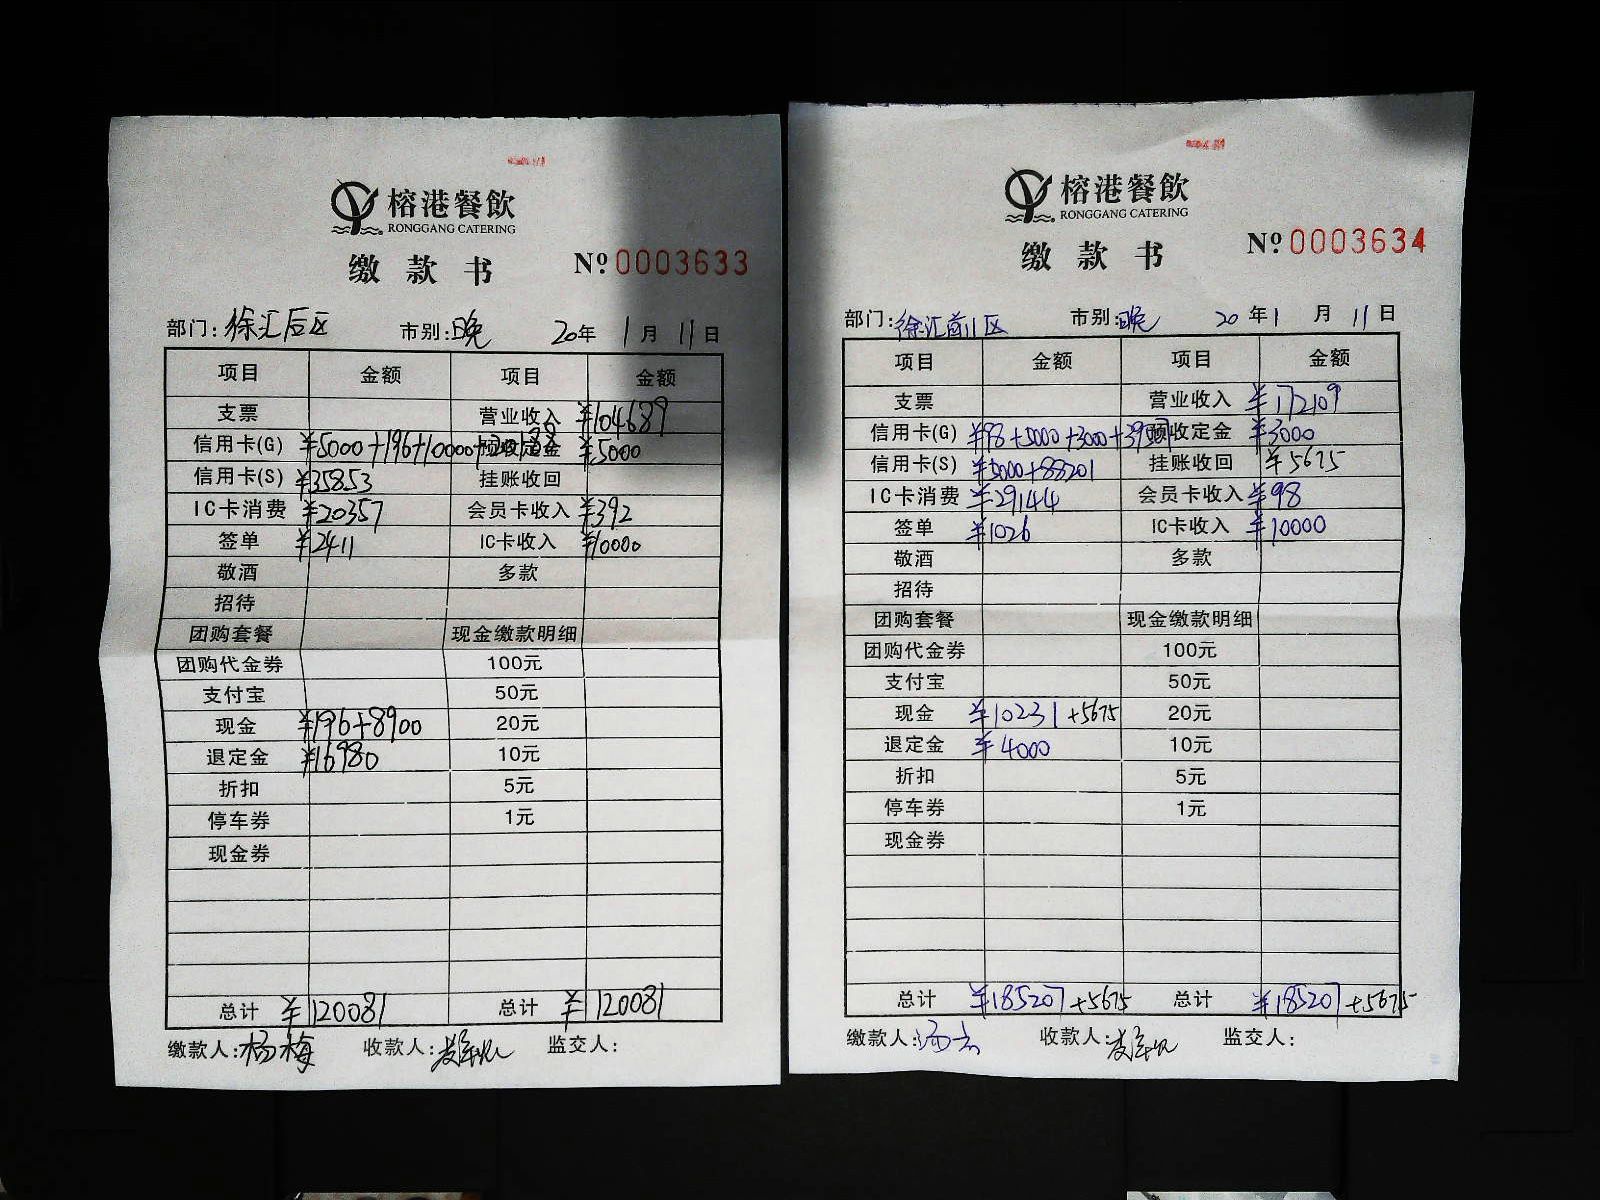 榕港餐飲
RONGGANG CATERING
缴款书
№ 0003633
部门: 徐汇后区 市别: 晚 20年 1月 11日
项目 金额 项目 金额
支票 营业收入 ¥104689
信用卡(G) ¥5000+196+10000+20188 预收定金 ¥5000
信用卡(S) ¥35853 挂账收回
IC卡消费 ¥20357 会员卡收入 ¥392
签单 ¥2411 IC卡收入 ¥10000
敬酒 多款
招待
团购套餐 现金缴款明细
团购代金券 100元
支付宝 50元
现金 ¥196+8900 20元
退定金 ¥16980 10元
折扣 5元
停车券 1元
现金券
总计 ¥120081 总计 ¥120081
缴款人: 杨梅 收款人: 监交人:
榕港餐飲
RONGGANG CATERING
缴款书
№ 0003634
部门: 徐汇前区 市别: 晚 20年 1月 11日
项目 金额 项目 金额
支票 营业收入 ¥172109
信用卡(G) ¥98+5000+3000+39507 预收定金 ¥3000
信用卡(S) ¥5000+88201 挂账收回 ¥5675
IC卡消费 ¥29144 会员卡收入 ¥98
签单 ¥1026 IC卡收入 ¥10000
敬酒 多款
招待
团购套餐 现金缴款明细
团购代金券 100元
支付宝 50元
现金 ¥10231+5675 20元
退定金 ¥4000 10元
折扣 5元
停车券 1元
现金券
总计 ¥185207+5675 总计 ¥185207+5675
缴款人: 收款人: 监交人: